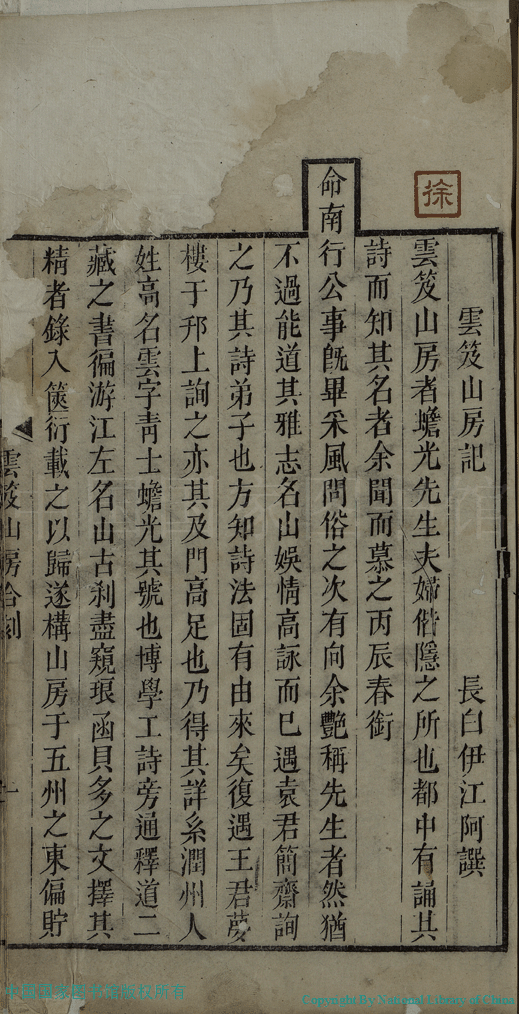 徐
雲笈山房記
長白伊江阿譔
雲笈山房者蟾光先生夫婦偕隱之所也都中有誦其
詩而知其名者余聞而慕之丙辰春銜
命南行公事旣畢采風問俗之次有向余艷稱先生者然猶
不過能道其雅志名山娛情高詠而已遇袁君簡齋詢
之乃其詩弟子也方知詩法固有由來矣復遇王君夢
樓于邗上詢之亦其及門高足也乃得其詳系潤州人
姓高名雲字靑士蟾光其號也博學工詩旁通釋道二
藏之書徧游江左名山古刹盡窺琅函貝多之文擇其
精者錄入篋衍載之以歸遂構山房于五州之東偏貯
雲笈山房合刻
一
中国国家图书馆版权所有
Copyright By National Library of China